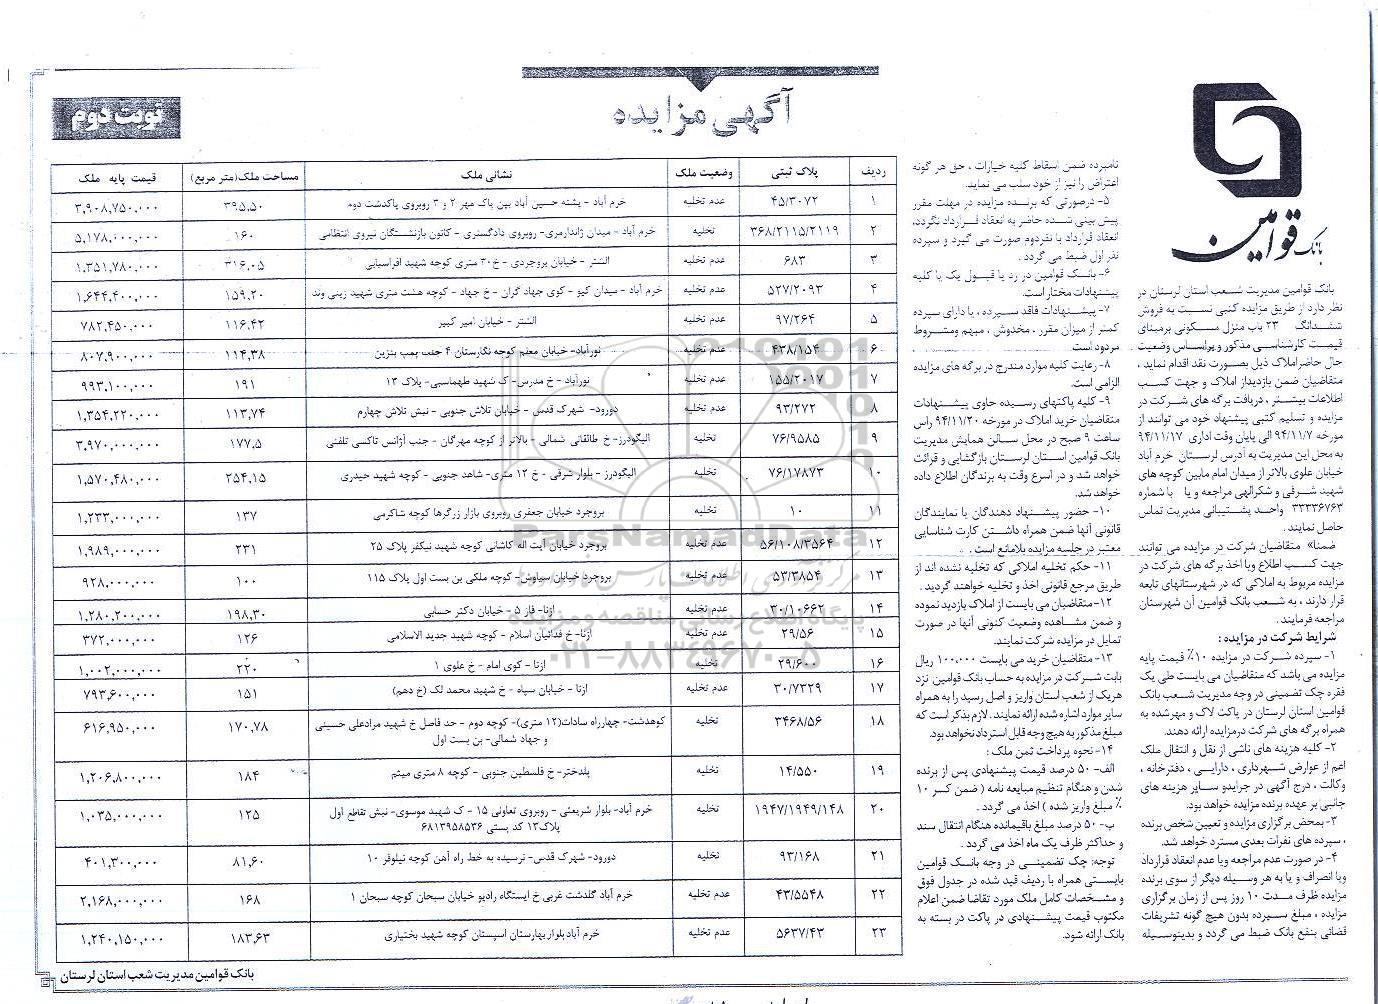 آگهی مزایده
نوبت دوم
بانک قوامین
بانک قوامین مدیریت شعب استان لرستان در
نظر دارد از طریق مزایده کتبی نسبت به فروش
ششدانگ ۲۳ باب منزل مسکونی برمبنای
قیمت کارشناسی مذکور و براساس وضعیت
حال حاضر املاک ذیل بصورت نقد اقدام نماید ،
متقاضیان ضمن بازدیداز املاک و جهت کسب
اطلاعات بیشتر ، دریافت برگه های شرکت در
مزایده و تسلیم کتبی پیشنهاد خود می توانند از
مورخه ۹۴/۱۱/۷ الی پایان وقت اداری ۹۴/۱۱/۱۷
به محل این مدیریت به آدرس لرستان خرم آباد
خیابان علوی بالاتر از میدان امام مابین کوچه های
شهید شرفی و شکرالهی مراجعه و یا با شماره
۳۳۳۳۶۷۶۳ واحد پشتیبانی مدیریت تماس
حاصل نمایند .
ضمنا» متقاضیان شرکت در مزایده می توانند
جهت کسب اطلاع ویا اخذ برگه های شرکت در
مزایده مربوط به املاکی که در شهرستانهای تابعه
قرار دارند ، به شعب بانک قوامین آن شهرستان
مراجعه فرمایند .
شرایط شرکت در مزایده :
۱- سپرده شرکت در مزایده ۱۰٪ قیمت پایه
مزایده می باشد که متقاضیان می بایست طی یک
فقره چک تضمینی در وجه مدیریت شعب بانک
قوامین استان لرستان در پاکت لاک و مهرشده به
همراه برگه های شرکت درمزایده ارائه دهند.
۲- کلیه هزینه های ناشی از نقل و انتقال ملک
اعم از عوارض شهرداری ، دارایی ، دفترخانه ،
وکالت ، درج آگهی در جرایدو سایر هزینه های
جانبی بر عهده برنده مزایده خواهد بود.
۳- بمحض برگزاری مزایده و تعیین شخص برنده
، سپرده های نفرات بعدی مسترد خواهد شد.
۴- در صورت عدم مراجعه ویا عدم انعقاد قرارداد
ویا انصراف و یا به هر وسیله دیگر از سوی برنده
مزایده ظرف مدت ۱۰ روز پس از زمان برگزاری
مزایده ، مبلغ سپرده بدون هیچ گونه تشریفات
قضائی بنفع بانک ضبط می گردد و بدینوسیله
نامبرده ضمن اسقاط کلیه خیارات ، حق هر گونه
اعتراض را نیز از خود سلب می نماید.
۵- درصورتی که برنده مزایده در مهلت مقرر
پیش بینی شده حاضر به انعقاد قرارداد نگردد،
انعقاد قرارداد با نفردوم صورت می گیرد و سپرده
نفر اول ضبط می گردد .
۶- بانک قوامین در رد یا قبول یک یا کلیه
پیشنهادات مختار است.
۷- پیشنهادات فاقد سپرده ، یا دارای سپرده
کمتر از میزان مقرر ، مخدوش ، مبهم ومشروط
مردود است
۸- رعایت کلیه موارد مندرج در برگه های مزایده
الزامی است.
۹- کلیه پاکتهای رسیده حاوی پیشنهادات
متقاضیان خرید املاک در مورخه ۹۴/۱۱/۲۰ راس
ساعت ۹ صبح در محل سالن همایش مدیریت
بانک قوامین استان لرستان بازگشایی و قرائت
خواهد شد و در اسرع وقت به برندگان اطلاع داده
خواهد شد.
۱۰- حضور پیشنهاد دهندگان یا نمایندگان
قانونی آنها ضمن همراه داشتن کارت شناسایی
معتبر در جلسه مزایده بلامانع است .
۱۱- حکم تخلیه املاکی که تخلیه نشده اند از
طریق مرجع قانونی اخذ و تخلیه خواهند گردید .
۱۲- متقاضیان می بایست از املاک بازدید نموده
و ضمن مشاهده وضعیت کنونی آنها در صورت
تمایل در مزایده شرکت نمایند.
۱۳- متقاضیان خرید می بایست ۱۰۰,۰۰۰ ریال
بابت شرکت در مزایده به حساب بانک قوامین نزد
هریک از شعب استان واریز و اصل رسید را به همراه
سایر موارد اشاره شده ارائه نمایند . لازم بذکر است که
مبلغ مذکور به هیچ وجه قابل استرداد نخواهد بود.
۱۴- نحوه پرداخت ثمن ملک :
الف- ۵۰ درصد قیمت پیشنهادی پس از برنده
شدن و هنگام تنظیم مبایعه نامه ( ضمن کسر ۱۰
٪ مبلغ واریز شده ) اخذ می گردد .
ب- ۵۰ درصد مبلغ باقیمانده هنگام انتقال سند
و حداکثر ظرف یک ماه اخذ می گردد .
توجه: چک تضمینی در وجه بانک قوامین
بایستی همراه با ردیف قید شده در جدول فوق
و مشخصات کامل ملک مورد تقاضا ضمن اعلام
مکتوب قیمت پیشنهادی در پاکت در بسته به
بانک ارائه شود.
ردیف پلاک ثبتی وضعیت ملک نشانی ملک مساحت ملک(متر مربع) قیمت پایه ملک
۱ ۴۵/۳۰۷۲ عدم تخلیه خرم آباد - پشته حسین آباد بین پاک مهر ۲ و ۳ روبروی پاکدشت دوم ۳۹۵.۵۰ ۳,۹۰۸,۷۵۰,۰۰۰
۲ ۳۶۸/۲۱۱۵/۲۱۱۹ تخلیه خرم آباد - میدان ژاندارمری- روبروی دادگستری - کانون بازنشستگان نیروی انتظامی ۱۶۰ ۵,۱۷۸,۰۰۰,۰۰۰
۳ ۶۸۳ عدم تخلیه الشتر - خیابان بروجردی - خ ۳۰ متری کوچه شهید افراسیابی ۳۱۶.۰۵ ۱,۳۵۱,۷۸۰,۰۰۰
۴ ۵۲۷/۲۰۹۳ عدم تخلیه خرم آباد - میدان کیو - کوی جهاد گران - خ جهاد - کوچه هشت متری شهید زینی وند ۱۵۹.۲۰ ۱,۶۴۴,۴۰۰,۰۰۰
۵ ۹۷/۲۶۴ عدم تخلیه الشتر - خیابان امیر کبیر ۱۱۶.۴۲ ۷۸۲,۴۵۰,۰۰۰
۶ ۴۳۸/۱۵۴ عدم تخلیه نورآباد- خیابان معلم کوچه نگارستان ۴ جنب پمپ بنزین ۱۱۴.۳۸ ۸۰۷,۹۰۰,۰۰۰
۷ ۱۵۵/۲۰۱۷ عدم تخلیه نورآباد - خ مدرس- ک شهید طهماسبی- پلاک ۱۳ ۱۹۱ ۹۹۳,۱۰۰,۰۰۰
۸ ۹۳/۲۷۲ عدم تخلیه دورود- شهرک قدس - خیابان تلاش جنوبی - نبش تلاش چهارم ۱۱۳.۷۴ ۱,۳۵۴,۲۲۰,۰۰۰
۹ ۷۶/۹۵۸۵ تخلیه الیگودرز- خ طالقانی شمالی - بالاتر از کوچه مهرگان - جنب آژانس تاکسی تلفنی ۱۷۷.۵ ۳,۹۷۰,۰۰۰,۰۰۰
۱۰ ۷۶/۱۷۸۷۳ تخلیه الیگودرز - بلوار شرقی - خ ۱۲ متری- شاهد جنوبی - کوچه شهید حیدری ۲۵۴.۱۵ ۱,۵۷۰,۴۸۰,۰۰۰
۱۱ ۱۰ تخلیه بروجرد خیابان جعفری روبروی بازار زرگرها کوچه شاکرمی ۱۳۷ ۱,۲۳۳,۰۰۰,۰۰۰
۱۲ ۵۶/۱۰۸/۳۵۶۴ تخلیه بروجرد خیابان آیت اله کاشانی کوچه شهید نیکفر پلاک ۲۵ ۲۳۱ ۱,۹۸۹,۰۰۰,۰۰۰
۱۳ ۵۳/۳۸۵۴ عدم تخلیه بروجرد خیابان سیاوش- کوچه ملکی بن بست اول پلاک ۱۱۵ ۱۰۰ ۹۲۸,۰۰۰,۰۰۰
۱۴ ۳۰/۱۰۶۶۲ عدم تخلیه ازنا- فاز ۵ - خیابان دکتر حسابی ۱۹۸.۳۰ ۱,۲۸۰,۲۰۰,۰۰۰
۱۵ ۲۹/۵۶ عدم تخلیه ازنا- خ فدائیان اسلام - کوچه شهید جدید الاسلامی ۱۲۶ ۳۷۲,۰۰۰,۰۰۰
۱۶ ۲۹/۶۰۰ تخلیه ازنا - کوی امام - خ علوی ۱ ۲۲۰ ۱,۰۰۲,۰۰۰,۰۰۰
۱۷ ۳۰/۷۳۲۹ عدم تخلیه ازنا - خیابان سپاه - خ شهید محمد لک (خ دهم) ۱۵۱ ۷۹۳,۶۰۰,۰۰۰
۱۸ ۳۴۶۸/۵۶ تخلیه کوهدشت- چهارراه سادات(۱۲ متری)- کوچه دوم - حد فاصل خ شهید مرادعلی حسینی و جهاد شمالی- بن بست اول ۱۷۰.۷۸ ۶۱۶,۹۵۰,۰۰۰
۱۹ ۱۴/۵۵۰ تخلیه پلدختر- خ فلسطین جنوبی - کوچه ۸ متری میثم ۱۸۴ ۱,۲۰۶,۸۰۰,۰۰۰
۲۰ ۱۹۴۷/۱۹۴۹/۱۴۸ تخلیه خرم آباد- بلوار شریعتی - روبروی تعاونی ۱۵ - ک شهید موسوی- نبش تقاطع اول پلاک۱۳ کد پستی ۶۸۱۳۹۵۸۵۳۶ ۱۲۵ ۱,۰۳۵,۰۰۰,۰۰۰
۲۱ ۹۳/۱۶۸ تخلیه دورود- شهرک قدس- نرسیده به خط راه آهن کوچه نیلوفر ۱۰ ۸۱.۶۰ ۴۰۱,۳۰۰,۰۰۰
۲۲ ۴۳/۵۵۴۸ عدم تخلیه خرم آباد گلدشت غربی خ ایستگاه رادیو خیابان سبحان کوچه سبحان ۱ ۱۶۸ ۲,۱۶۸,۰۰۰,۰۰۰
۲۳ ۵۶۳۷/۴۳ عدم تخلیه خرم آباد بلوار بهارستان اسپستان کوچه شهید بختیاری ۱۸۳.۶۳ ۱,۲۴۰,۱۵۰,۰۰۰
بانک قوامین مدیریت شعب استان لرستان
ParsNamadData
پایگاه اطلاع رسانی مناقصه و مزایده
۰۲۱-۸۸۳۴۹۶۷۰-۵